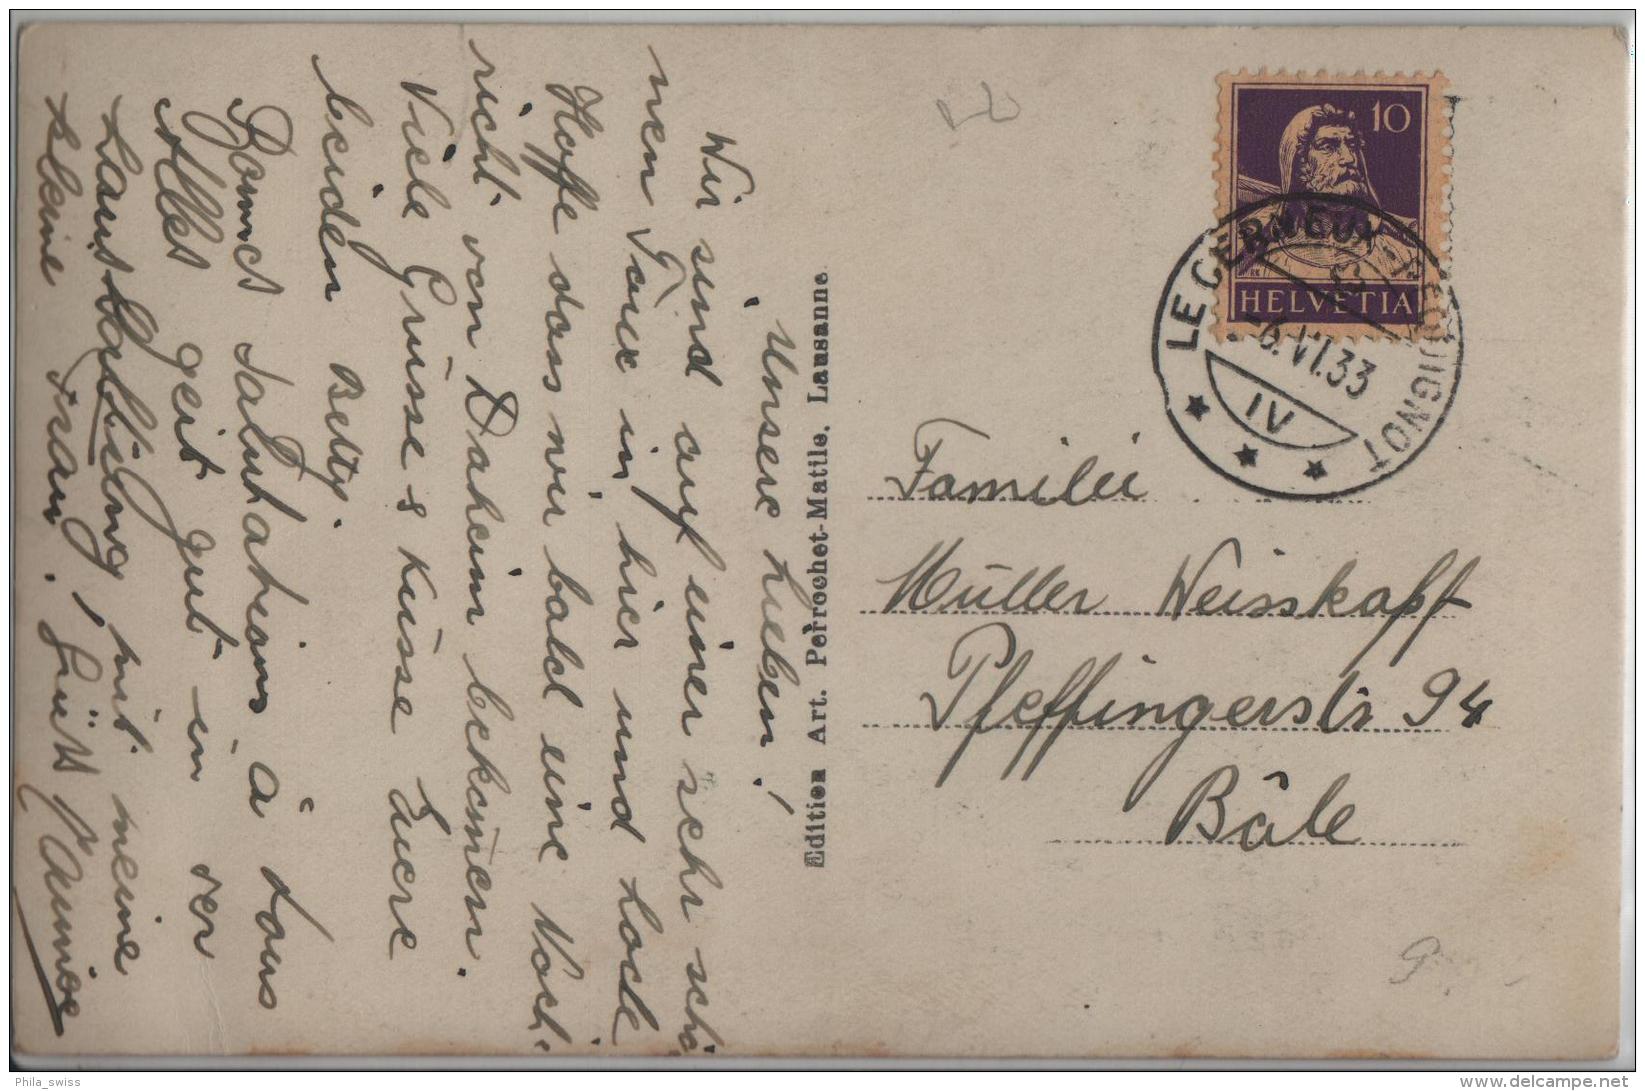 Unsere Lieben!
Wir sind auf einer sehr schö
nen Tour in hier und Locle
Hoffe dass wir bald eine Nach-
richt von Daheim bekommen.
Viele Grüsse & Küsse Euere
beiden Betty.
Bonnes Salutations à tous
Alles geit gut in der
Haushaltung, mit meine
kleine Frau. Grüss
Edition Art. Perrochet-Matile, Lausanne
10
HELVETIA
LE CERNEUX-PEQUIGNOT
-6.VI.33
IV
Familie
Müller Weisskopf
Pfeffingerstr 94
Bâle
Phila_swiss
www.delcampe.net